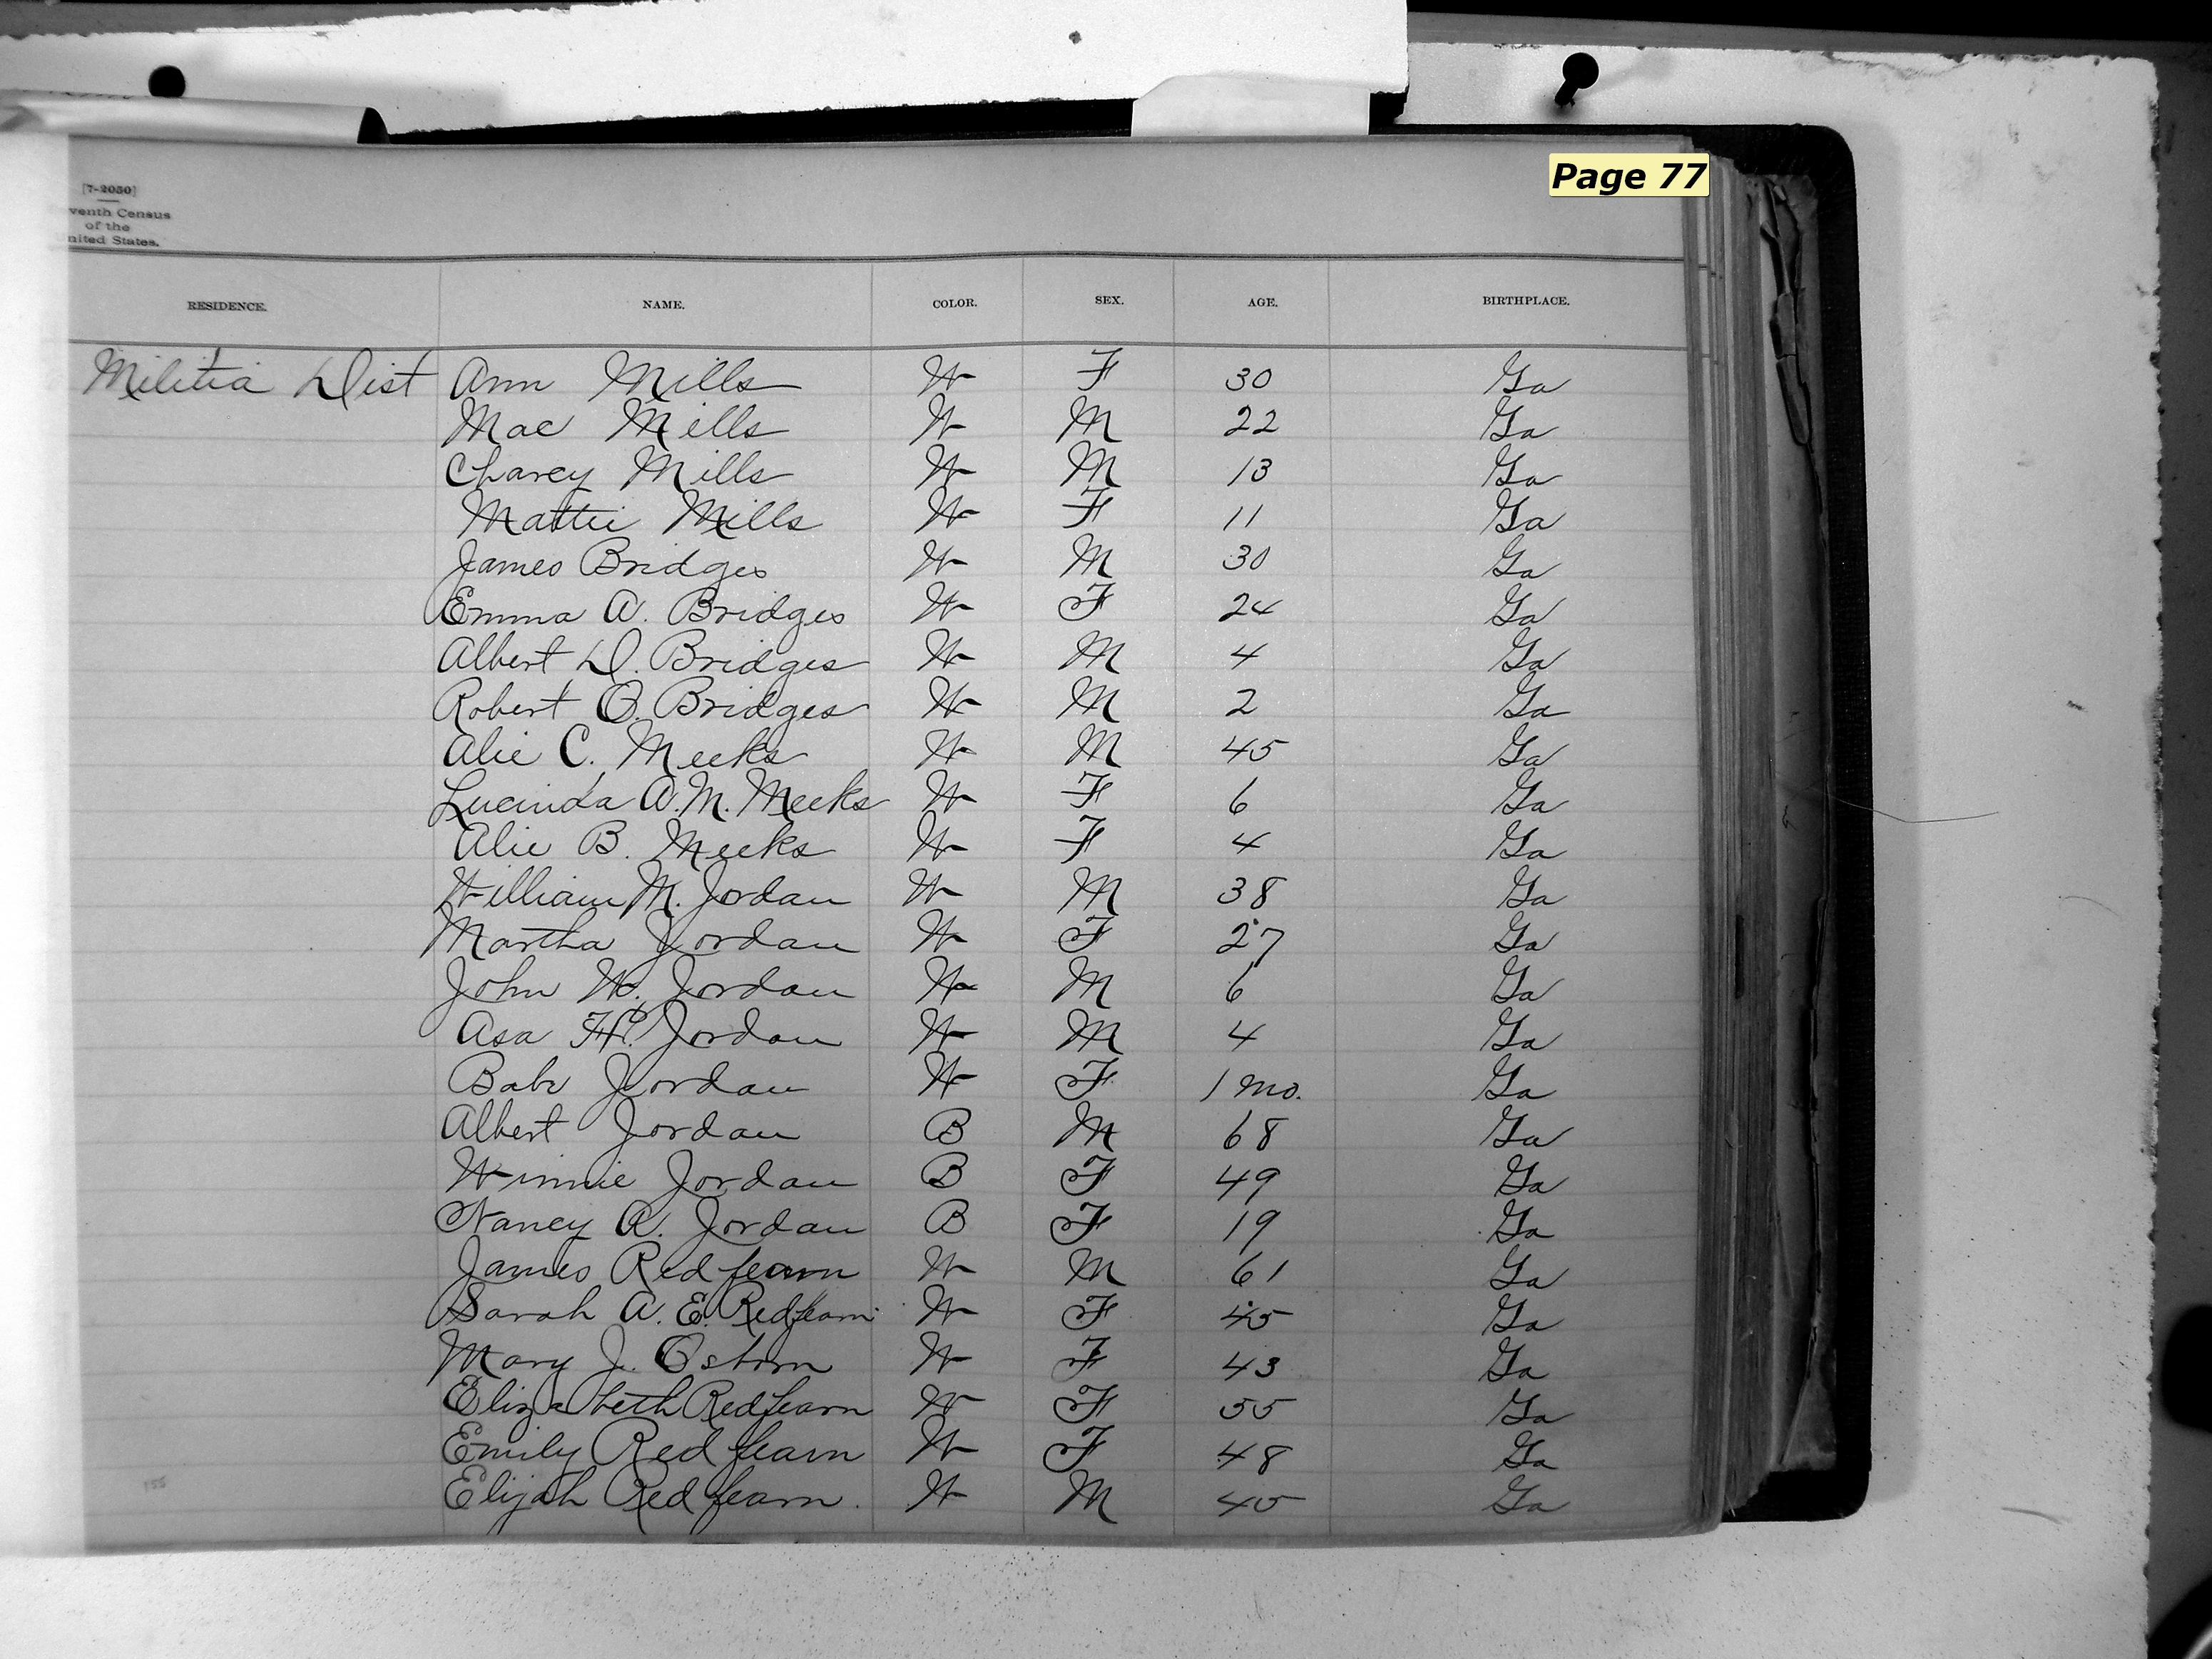 Page 77
[7-2050]
venth Census
of the
nited States.
RESIDENCE. NAME. COLOR. SEX. AGE. BIRTHPLACE.
Militia Dist Ann Mills W F 30 Ga
Mac Mills W M 22 Ga
Charey Mills W M 13 Ga
Mattie Mills W F 11 Ga
James Bridges W M 30 Ga
Emma A. Bridges W F 24 Ga
Albert D. Bridges W M 4 Ga
Robert O. Bridges W M 2 Ga
Alie C. Meeks W M 45 Ga
Lucinda A.M. Meeks W F 6 Ga
Alie B. Meeks W F 4 Ga
William M. Jordan W M 38 Ga
Martha Jordan W F 27 Ga
John W. Jordan W M 6 Ga
Asa H. Jordan W M 4 Ga
Babe Jordan W F 1 mo. Ga
Albert Jordan B M 68 Ga
Winnie Jordan B F 49 Ga
Nancy A. Jordan B F 19 Ga
James Redfearn W M 61 Ga
Sarah A. E. Redfearn W F 45 Ga
Mary J. Osborn W F 43 Ga
Elizabeth Redfearn W F 55 Ga
Emily Redfearn W F 48 Ga
Elijah Redfearn. W M 45 Ga